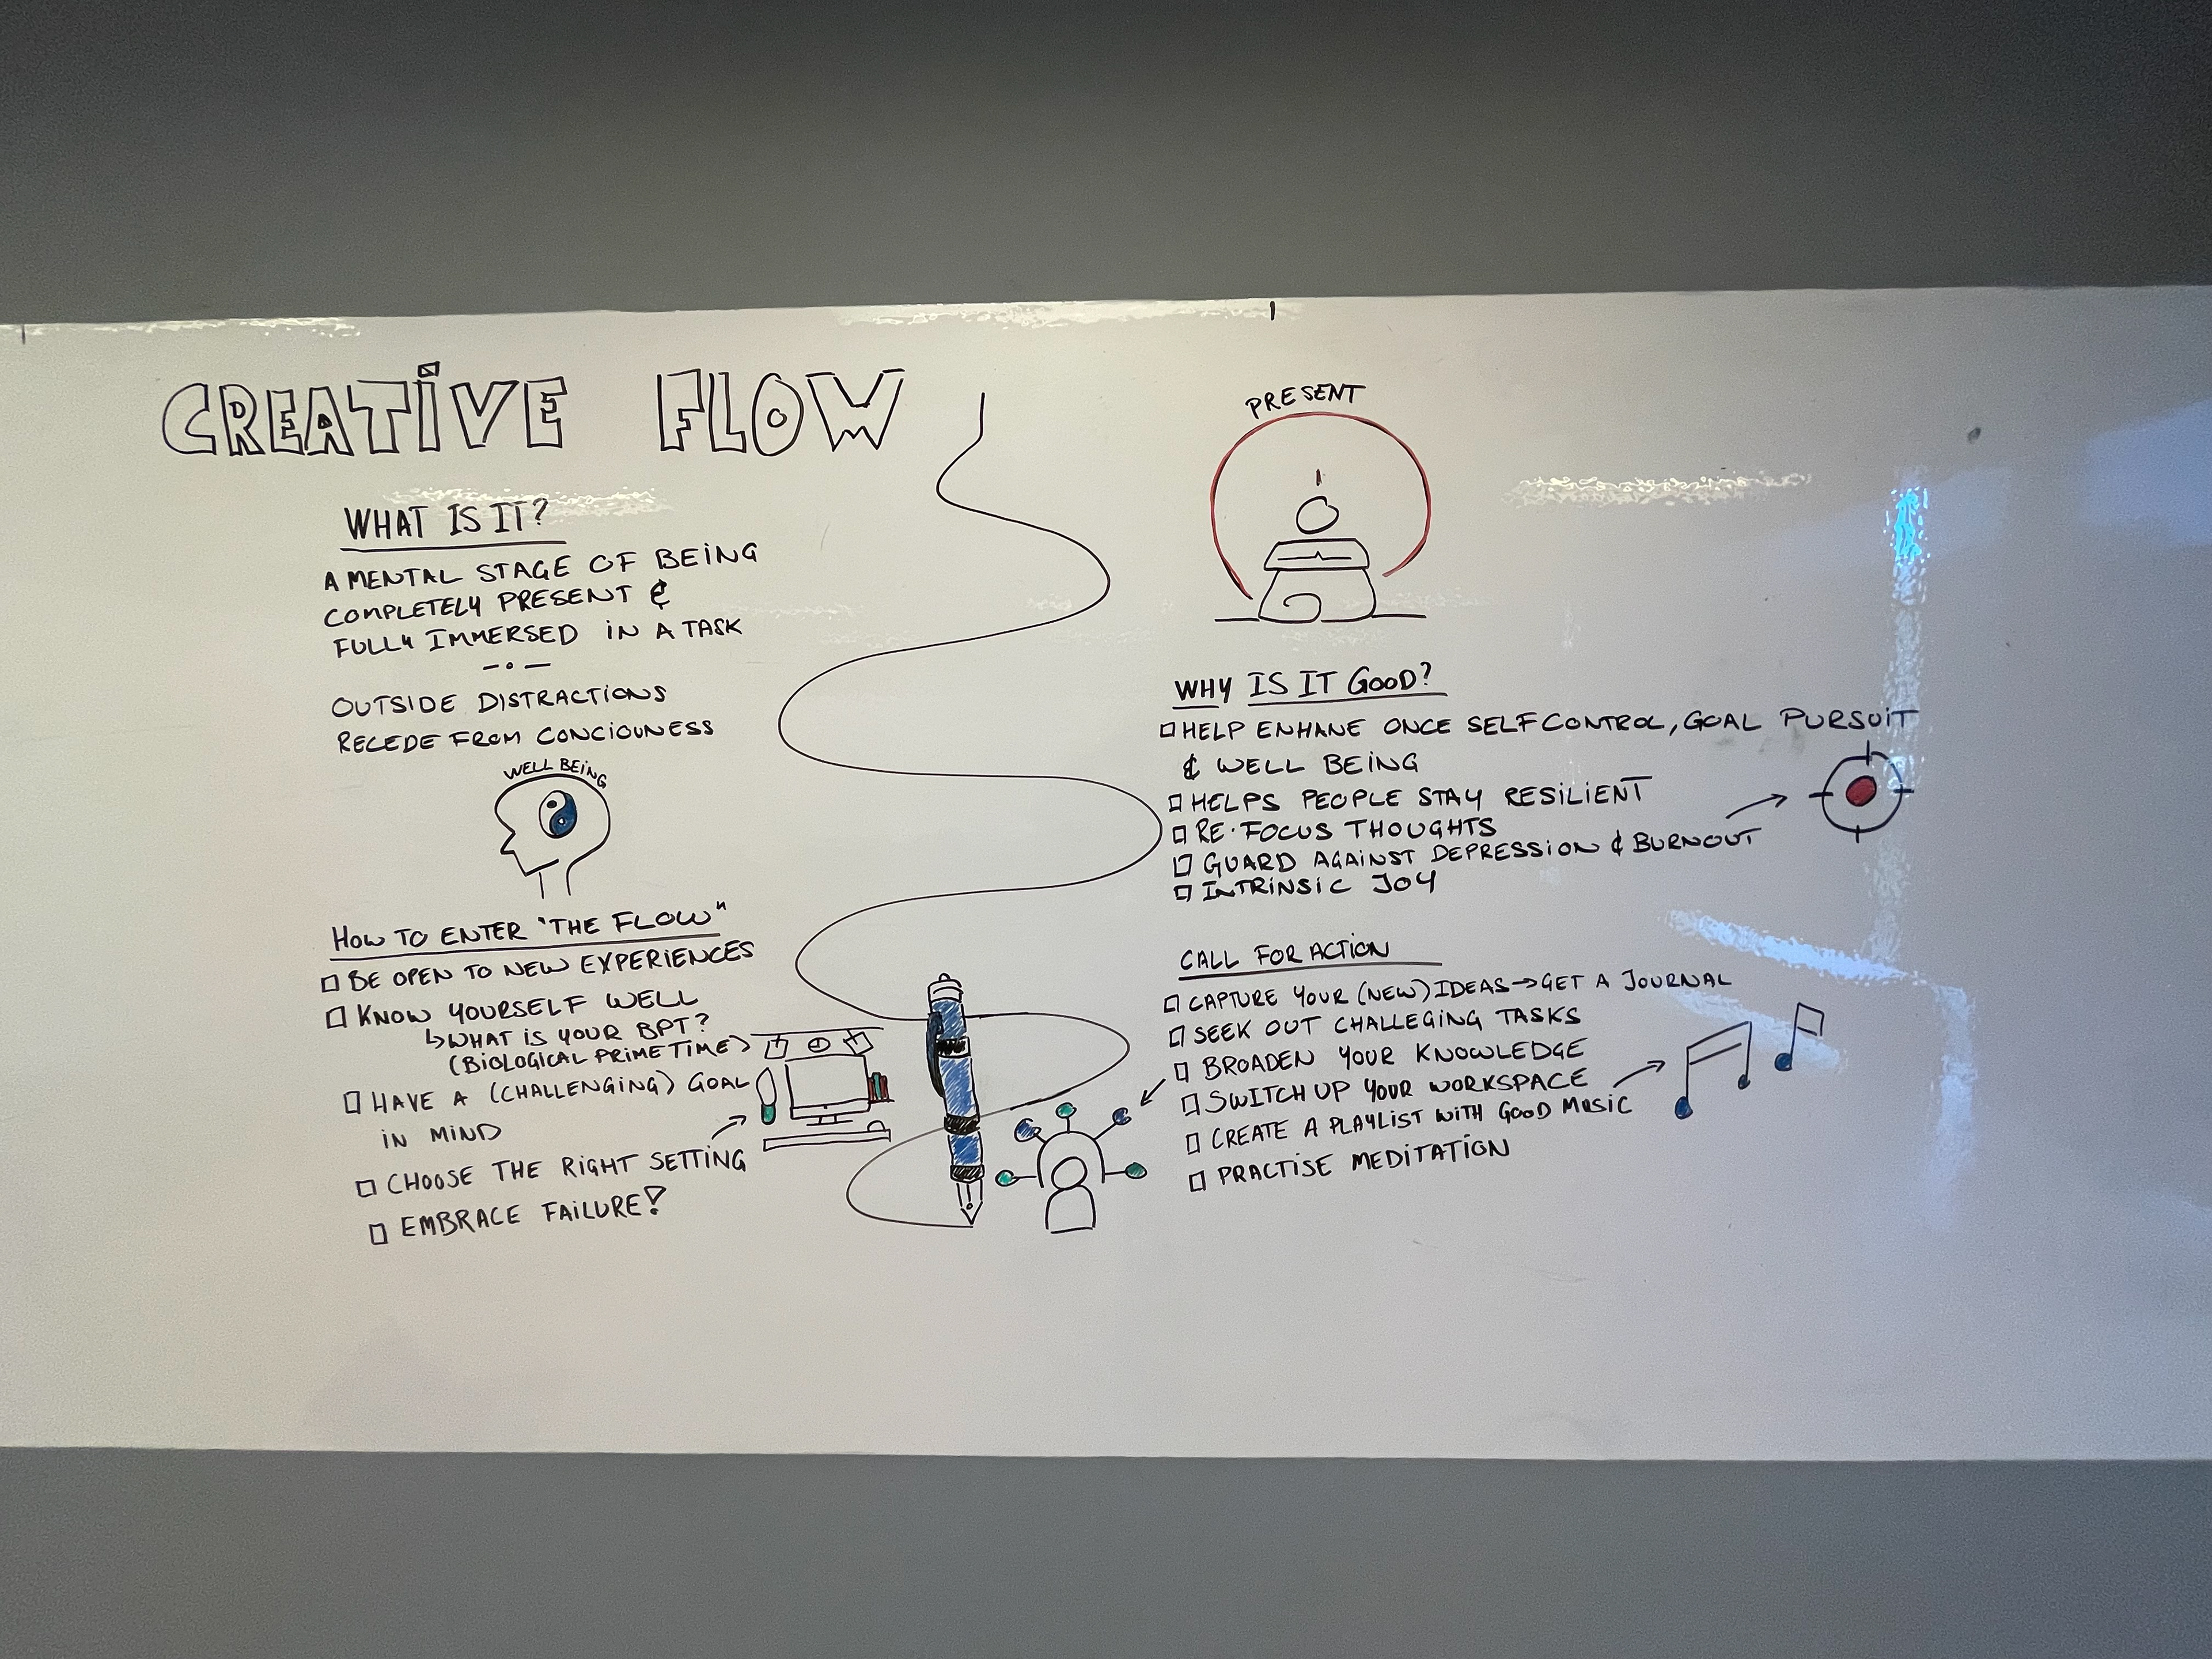 CREATIVE FLOW
WHAT IS IT?
A MENTAL STAGE OF BEING
COMPLETELY PRESENT &
FULLY IMMERSED IN A TASK
OUTSIDE DISTRACTIONS
RECEDE FROM CONCIOUNESS
WELL BEING
HOW TO ENTER "THE FLOW"
BE OPEN TO NEW EXPERIENCES
KNOW YOURSELF WELL
↳ WHAT IS YOUR BPT?
(BIOLOGICAL PRIME TIME)
HAVE A (CHALLENGING) GOAL
IN MIND
CHOOSE THE RIGHT SETTING
EMBRACE FAILURE!
PRESENT
WHY IS IT GOOD?
HELP ENHANE ONCE SELF CONTROL, GOAL PURSUIT
& WELL BEING
HELPS PEOPLE STAY RESILIENT
RE-FOCUS THOUGHTS
GUARD AGAINST DEPRESSION & BURNOUT
INTRINSIC JOY
CALL FOR ACTION
CAPTURE YOUR (NEW) IDEAS → GET A JOURNAL
SEEK OUT CHALLEGING TASKS
BROADEN YOUR KNOWLEDGE
SWITCH UP YOUR WORKSPACE
CREATE A PLAYLIST WITH GOOD MUSIC
PRACTISE MEDITATION